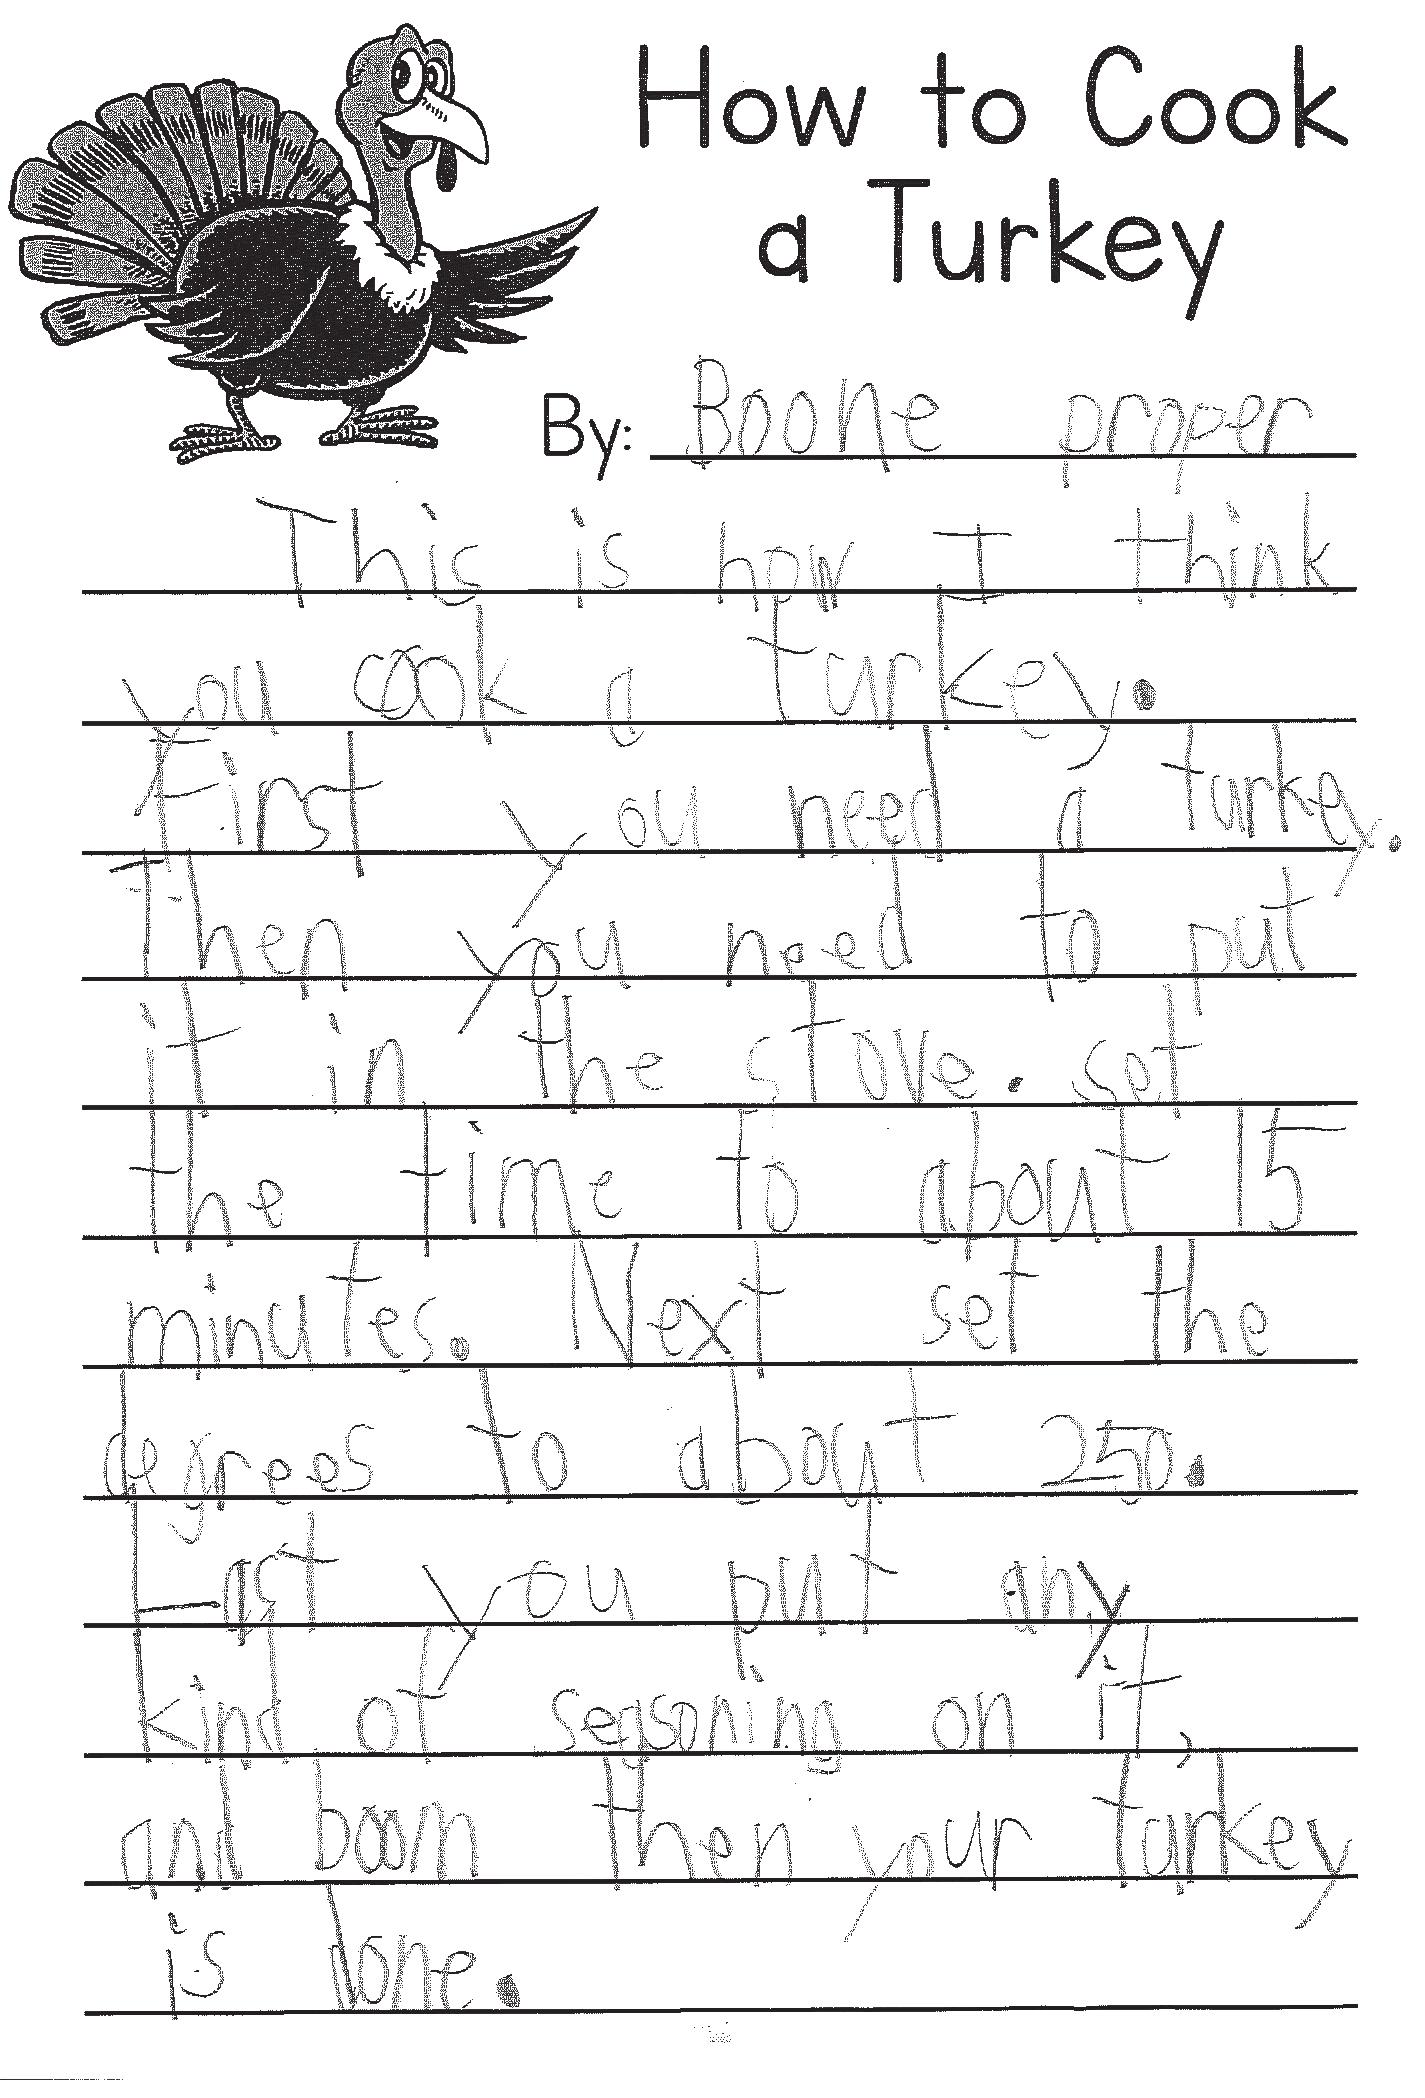 How to Cook
a Turkey
By: Boone proper
This is how I think
you cook a turkey.
First you need a turkey.
Then you need to put
it in the stove. set
the time to about 15
minutes. Next set the
degrees to about 250.
Last you put any
kind of seasoning on it,
and boom then your turkey
is done.